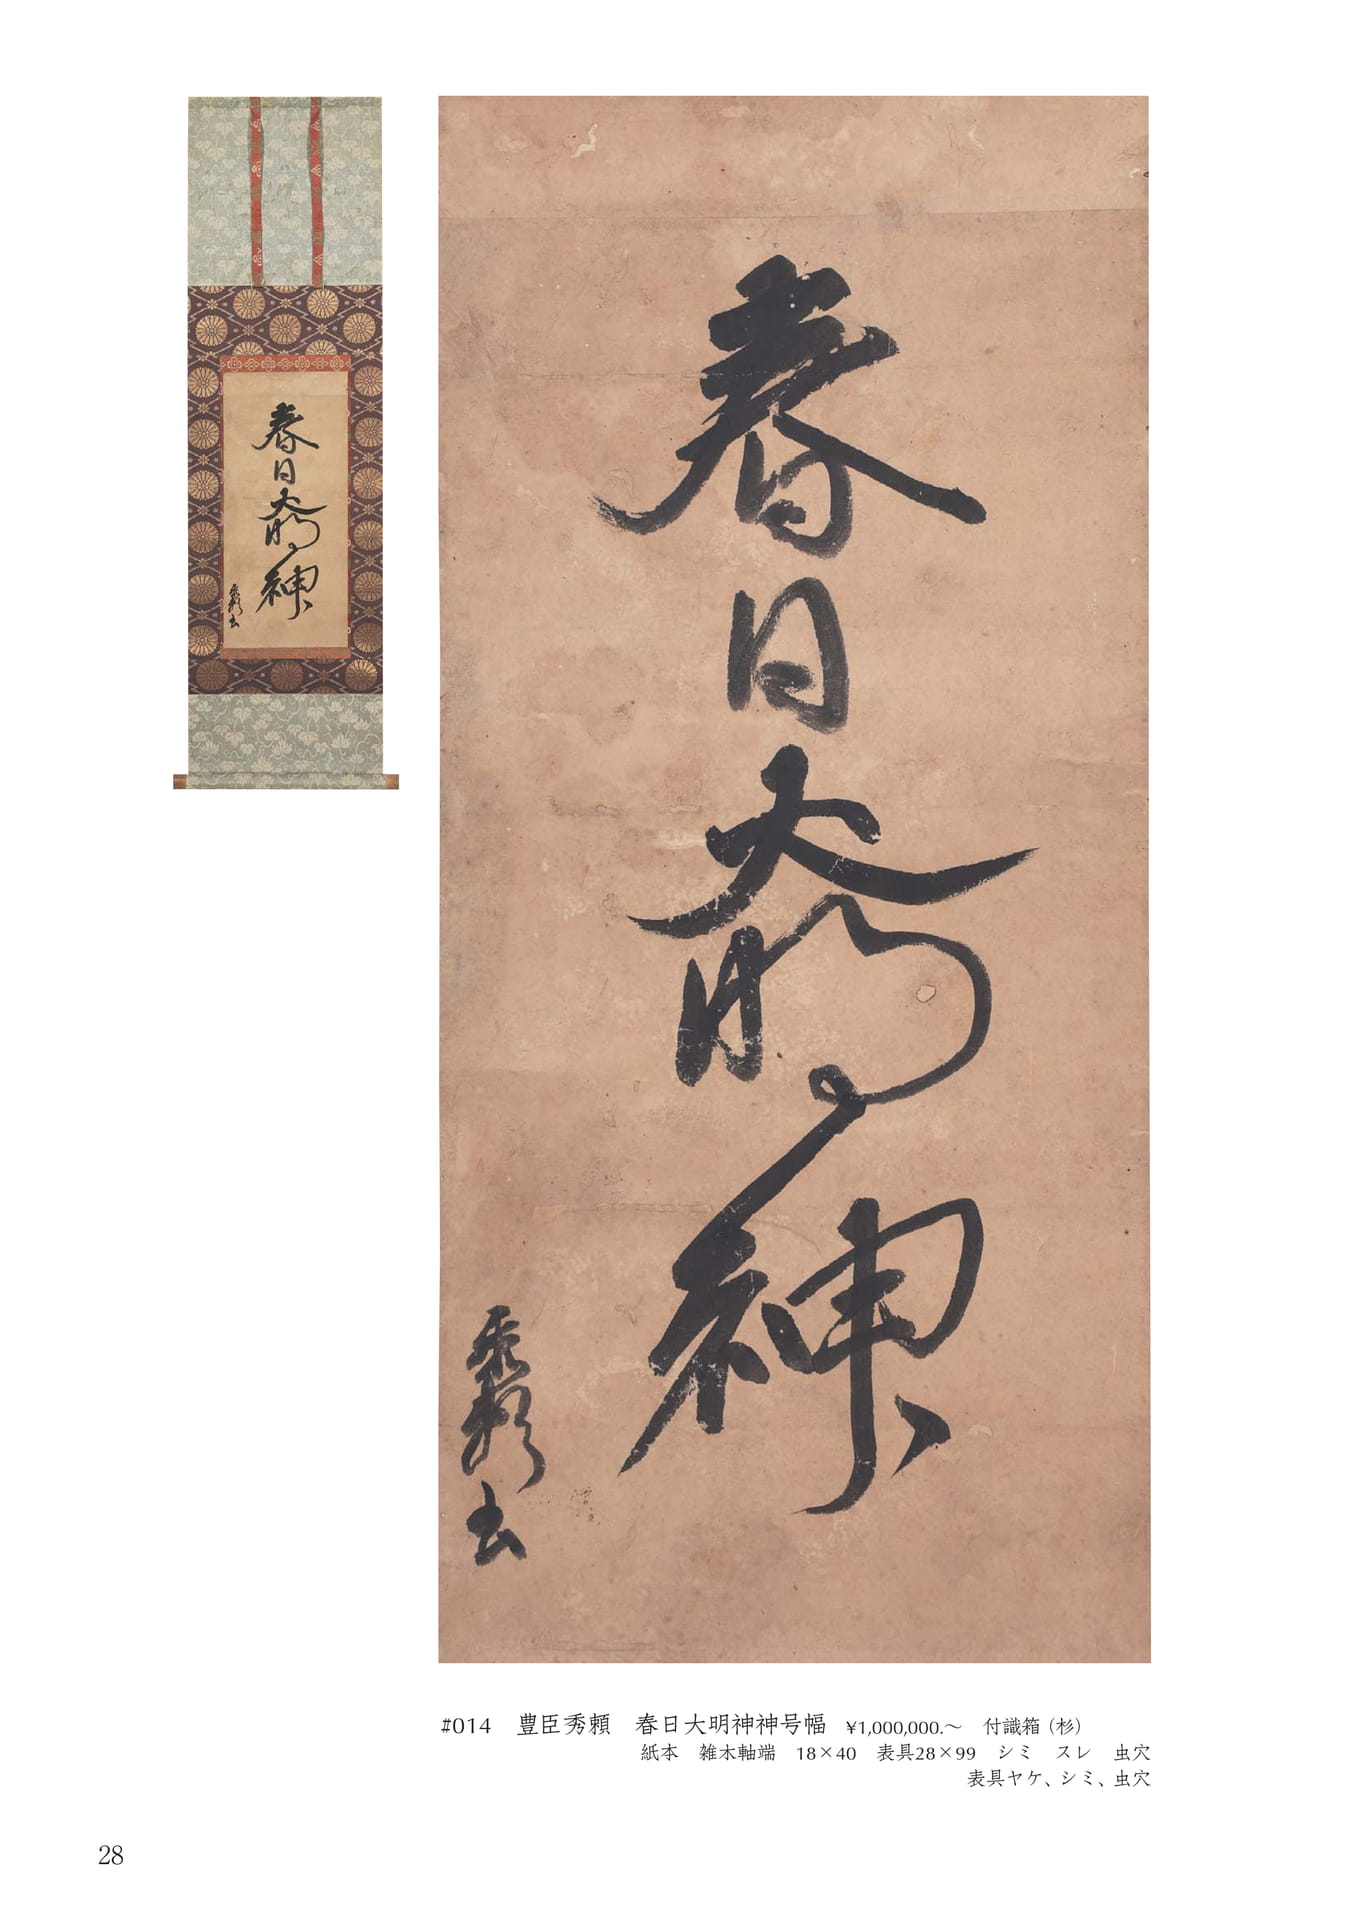 春日大明神
秀頼書
春日大明神
秀頼書
#014 豊臣秀頼 春日大明神神号幅 ¥1,000,000.〜 付識箱（杉）
紙本 雑木軸端 18×40 表具28×99 シミ スレ 虫穴
表具ヤケ、シミ、虫穴
28